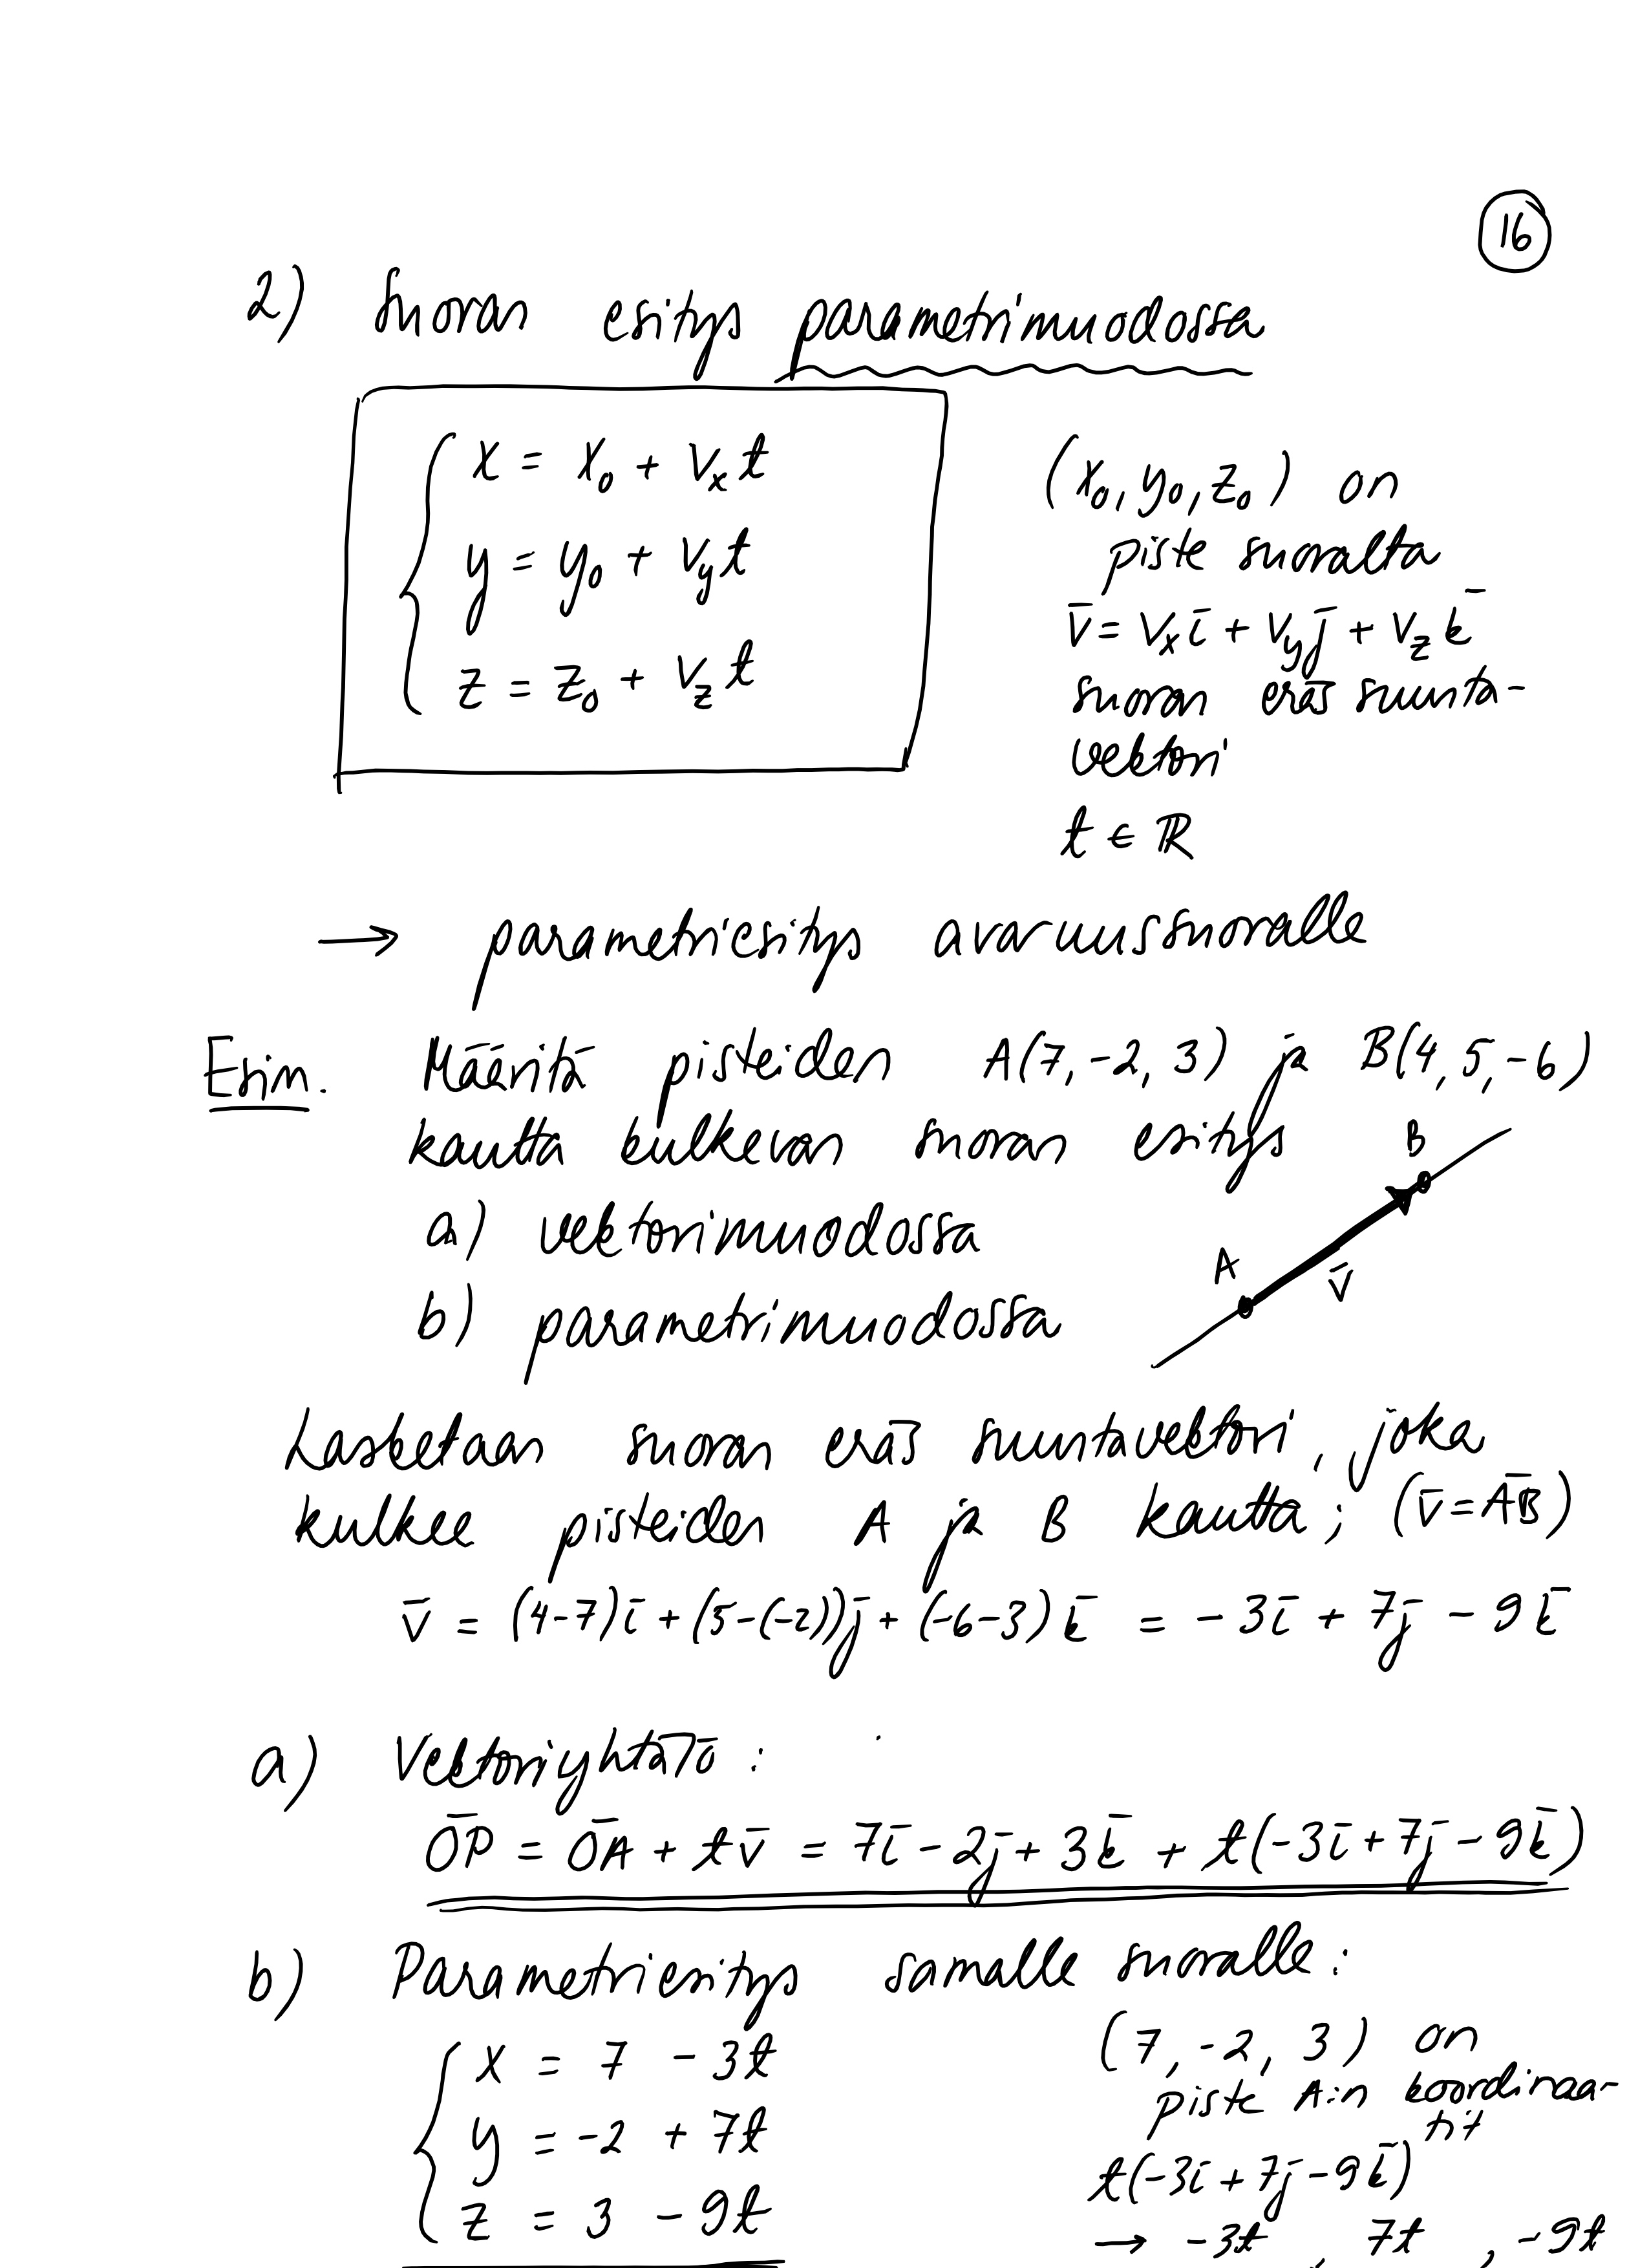 16
2) Suoran esitys parametrimuodossa
x = x₀ + vₓt
y = y₀ + v_y t
z = z₀ + v_z t
(x₀, y₀, z₀) on
piste suoralta
v̄ = vₓ ī + v_y j̄ + v_z k̄
suoran eräs suunta-
vektori
t ∈ ℝ
→ parametriesitys avaruussuoralle
Esim. Määritä pisteiden A(7, -2, 3) ja B(4, 5, -6)
kautta kulkevan suoran esitys
a) vektorimuodossa
b) parametrimuodossa
B
A
v̄
Lasketaan suoran eräs suuntavektori, joka
kulkee pisteiden A ja B kautta; (v̄ = A̅B̅)
v̄ = (4-7)ī + (5-(-2))j̄ + (-6-3)k̄ = -3ī + 7j̄ - 9k̄
a) Vektoriyhtälö :
O̅P̅ = O̅A̅ + t v̄ = 7ī - 2j̄ + 3k̄ + t(-3ī + 7j̄ - 9k̄)
b) Parametriesitys samalle suoralle :
x = 7 - 3t
y = -2 + 7t
z = 3 - 9t
(7, -2, 3) on
piste A:n koordinaa-
tit
t(-3ī + 7j̄ - 9k̄)
→ -3t, 7t, -9t